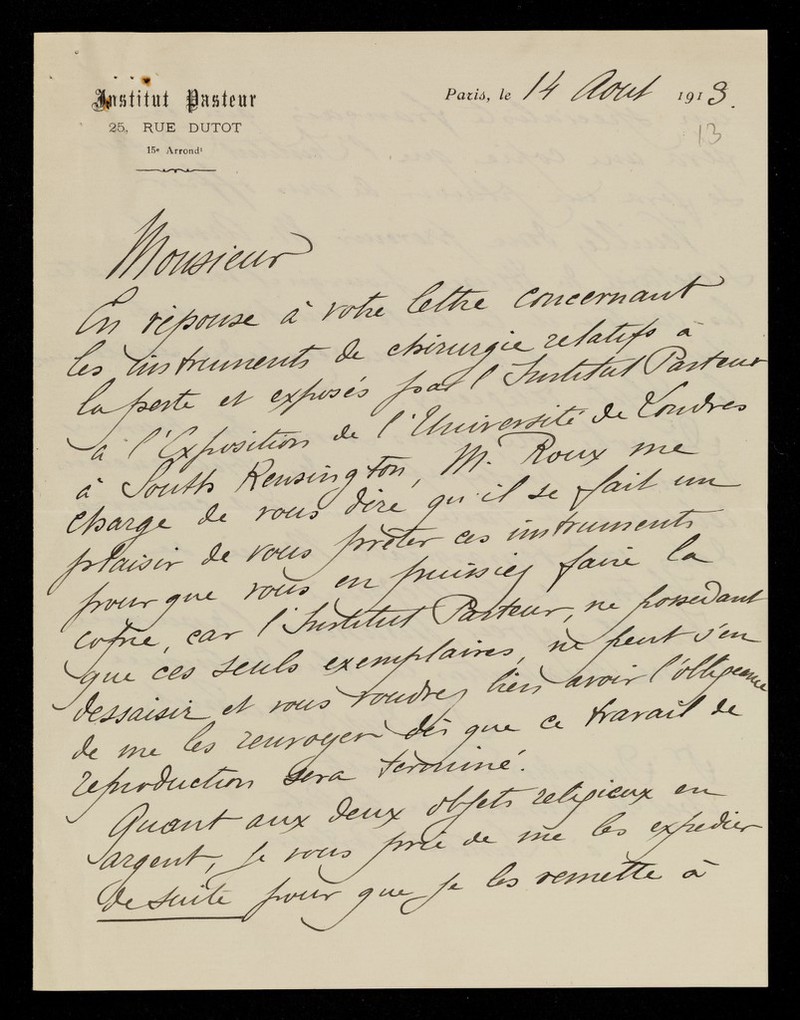 Institut Pasteur
25, RUE DUTOT
15e Arrondt
Paris, le 14 Aout 1913.
13
Monsieur
En réponse à votre lettre concernant
les instruments de chirurgie relatifs à
la peste et exposés par l'Institut Pasteur
à l'Exposition de l'Université de Londres
à South Kensington, M. Roux me
charge de vous dire qu'il se fait un
plaisir de vous prêter ces instruments
pour que vous en puissiez faire la
copie, car l'Institut Pasteur, ne possedant
que ces seuls exemplaires, ne peut s'en
dessaisir et vous voudrez bien avoir l'obligeance
de me les renvoyer dès que ce travail de
reproduction sera terminé.
Quant aux deux objets religieux en
argent, je vous prie de me les expedier
de suite pour que je les remette à